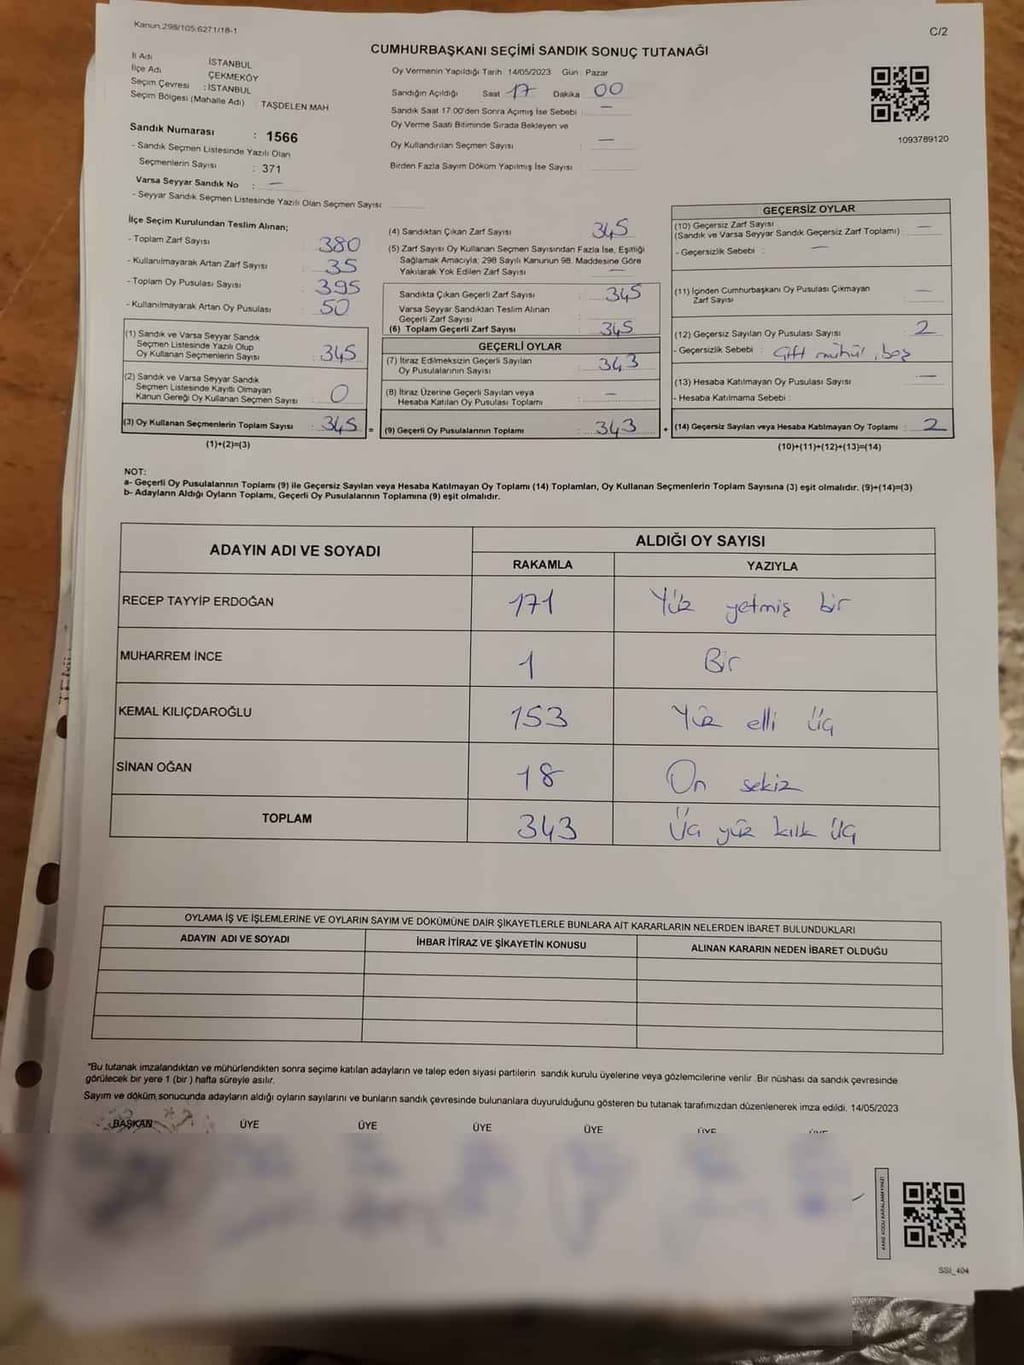 Kanun.298/105.6271/18-1
C/2
CUMHURBAŞKANI SEÇİMİ SANDIK SONUÇ TUTANAĞI
İl Adı İSTANBUL
İlçe Adı ÇEKMEKÖY
Seçim Çevresi : İSTANBUL
Seçim Bölgesi (Mahalle Adı) : TAŞDELEN MAH
Sandık Numarası : 1566
- Sandık Seçmen Listesinde Yazılı Olan
Seçmenlerin Sayısı : 371
Varsa Seyyar Sandık No : —
- Seyyar Sandık Seçmen Listesinde Yazılı Olan Seçmen Sayısı
Oy Vermenin Yapıldığı Tarih 14/05/2023 Gün : Pazar
Sandığın Açıldığı Saat 17 Dakika 00
Sandık Saat 17:00'den Sonra Açımış İse Sebebi : —
Oy Verme Saati Bitiminde Sırada Bekleyen ve
Oy Kullandırılan Seçmen Sayısı : —
Birden Fazla Sayım Döküm Yapılmış İse Sayısı :
1093789120
İlçe Seçim Kurulundan Teslim Alınan;
- Toplam Zarf Sayısı 380
- Kullanılmayarak Artan Zarf Sayısı 35
- Toplam Oy Pusulası Sayısı 395
- Kullanılmayarak Artan Oy Pusulası 50
(1) Sandık ve Varsa Seyyar Sandık
Seçmen Listesinde Yazılı Olup
Oy Kullanan Seçmenlerin Sayısı : 345
(2) Sandık ve Varsa Seyyar Sandık
Seçmen Listesinde Kayıtlı Olmayan
Kanun Gereği Oy Kullanan Seçmen Sayısı : 0
(3) Oy Kullanan Seçmenlerin Toplam Sayısı : 345 =
(1)+(2)=(3)
(4) Sandıktan Çıkan Zarf Sayısı 345
(5) Zarf Sayısı Oy Kullanan Seçmen Sayısından Fazla İse, Eşitliği
Sağlamak Amacıyla; 298 Sayılı Kanunun 98. Maddesine Göre
Yakılarak Yok Edilen Zarf Sayısı : —
Sandıkta Çıkan Geçerli Zarf Sayısı : 345
Varsa Seyyar Sandıktan Teslim Alınan
Geçerli Zarf Sayısı
(6) Toplam Geçerli Zarf Sayısı : 345
GEÇERLİ OYLAR
(7) İtiraz Edilmeksizin Geçerli Sayılan
Oy Pusulalarının Sayısı : 343
(8) İtiraz Üzerine Geçerli Sayılan veya
Hesaba Katılan Oy Pusulası Toplamı : —
(9) Geçerli Oy Pusulalarının Toplamı : 343 +
GEÇERSİZ OYLAR
(10) Geçersiz Zarf Sayısı
(Sandık ve Varsa Seyyar Sandık Geçersiz Zarf Toplamı) : —
- Geçersizlik Sebebi : —
(11) İçinden Cumhurbaşkanı Oy Pusulası Çıkmayan
Zarf Sayısı : —
(12) Geçersiz Sayılan Oy Pusulası Sayısı : 2
- Geçersizlik Sebebi : Çift mühür, boş
(13) Hesaba Katılmayan Oy Pusulası Sayısı : —
- Hesaba Katılmama Sebebi :
(14) Geçersiz Sayılan veya Hesaba Katılmayan Oy Toplamı : 2
(10)+(11)+(12)+(13)=(14)
NOT:
a- Geçerli Oy Pusulalarının Toplamı (9) ile Geçersiz Sayılan veya Hesaba Katılmayan Oy Toplamı (14) Toplamları, Oy Kullanan Seçmenlerin Toplam Sayısına (3) eşit olmalıdır. (9)+(14)=(3)
b- Adayların Aldığı Oyların Toplamı, Geçerli Oy Pusulalarının Toplamına (9) eşit olmalıdır.
ADAYIN ADI VE SOYADI ALDIĞI OY SAYISI
RAKAMLA YAZIYLA
RECEP TAYYİP ERDOĞAN 171 Yüz yetmiş bir
MUHARREM İNCE 1 Bir
KEMAL KILIÇDAROĞLU 153 Yüz elli üç
SİNAN OĞAN 18 On sekiz
TOPLAM 343 Üç yüz kırk üç
OYLAMA İŞ VE İŞLEMLERİNE VE OYLARIN SAYIM VE DÖKÜMÜNE DAİR ŞİKAYETLERLE BUNLARA AİT KARARLARIN NELERDEN İBARET BULUNDUKLARI
ADAYIN ADI VE SOYADI İHBAR İTİRAZ VE ŞİKAYETİN KONUSU ALINAN KARARIN NEDEN İBARET OLDUĞU
*Bu tutanak imzalandıktan ve mühürlendikten sonra seçime katılan adayların ve talep eden siyasi partilerin sandık kurulu üyelerine veya gözlemcilerine verilir. Bir nüshası da sandık çevresinde
görülecek bir yere 1 (bir ) hafta süreyle asılır.
Sayım ve döküm sonucunda adayların aldığı oyların sayılarını ve bunların sandık çevresinde bulunanlara duyurulduğunu gösteren bu tutanak tarafımızdan düzenlenerek imza edildi. 14/05/2023
BAŞKAN ÜYE ÜYE ÜYE ÜYE ÜYE
SSI_404